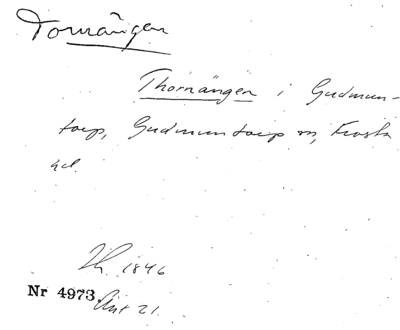 Tornängen
Thornängen i Gudmun-
torp, Gudmuntorp sn, Frosta
hd.
Th. 1846
Nr 4973. Akt 21.